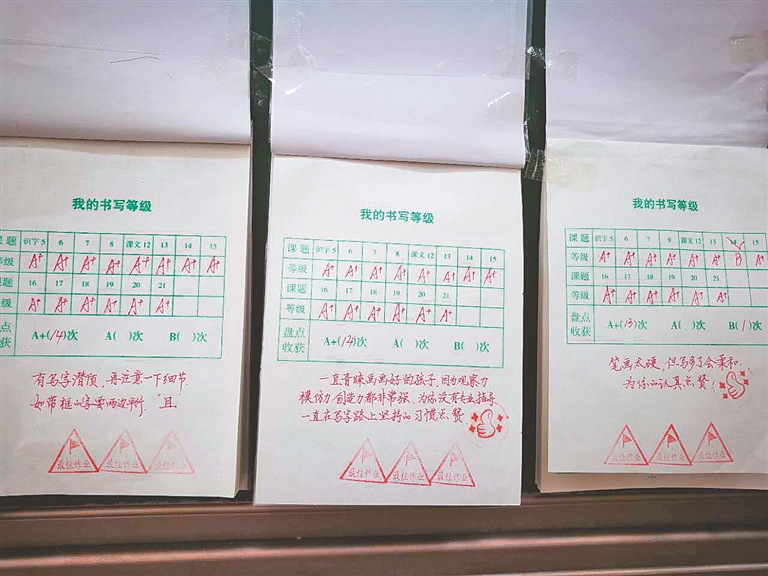 我的书写等级
课题 识字5 6 7 8 课文12 13 14 15
等级 A+ A+ A+ A+ A+ A+ A+ A+
课题 16 17 18 19 20 21
等级 A+ A+ A+ A+ A+ A+
盘点收获 A+(14)次 A( )次 B( )次
有写字潜质，再注意一下细节
如带框的字要两边平行，"且
最佳作业 最佳作业 最佳作业
我的书写等级
课题 识字5 6 7 8 课文12 13 14 15
等级 A+ A+ A+ A+ A+ A+ A+ A+
课题 16 17 18 19 20 21
等级 A+ A+ A+ A+ A+ A+
盘点
收获 A+(14)次 A( )次 B( )次
一直青睐画画好的孩子，因为观察力
模仿力，创造力都非常强，为你没有专业指导
一直在写字路上坚持的习惯点赞
最佳作业 最佳作业 最佳作业
我的书写等级
课题 识字5 6 7 8 课文12 13 14 15
等级 A+ A+ A+ A+ A+ A+ B A+
课题 16 17 18 19 20 21
等级 A+ A+ A+ A+ A+ A+
盘点
收获 A+(13)次 A( )次 B(1)次
笔画太硬，但写多了会柔和，
为你的认真点赞！
最佳作业 最佳作业 最佳作业